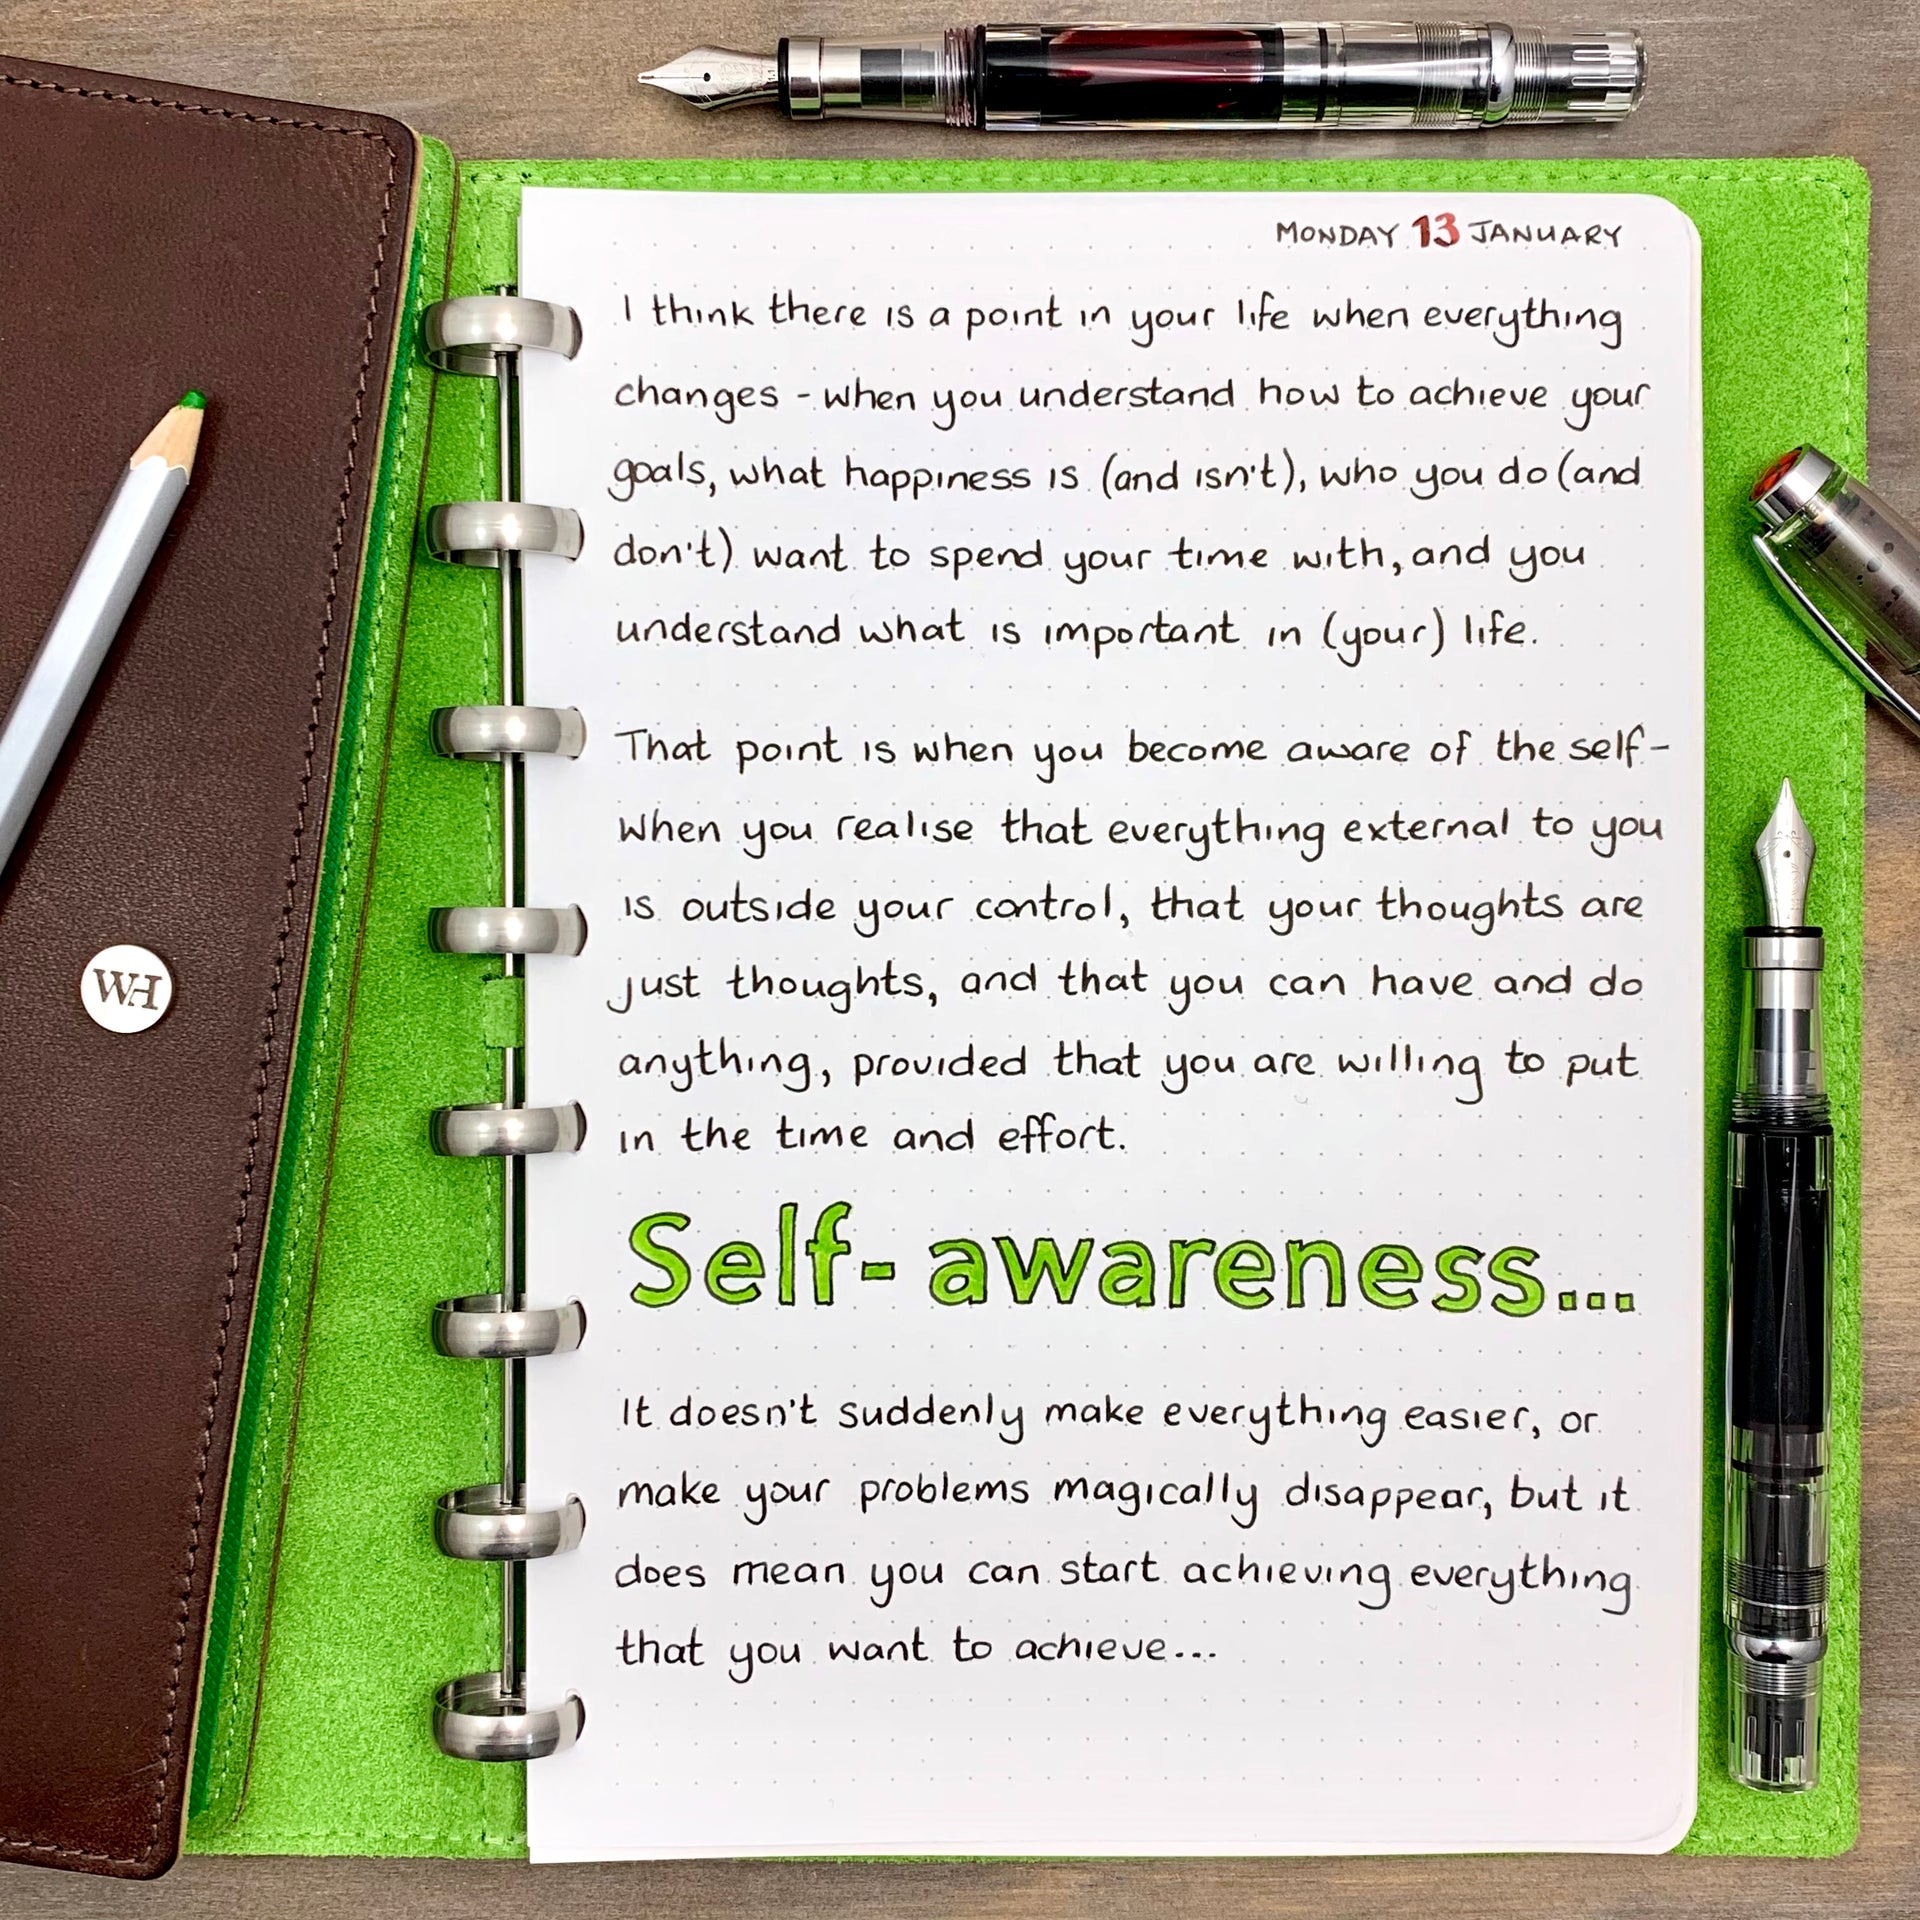 MONDAY 13 JANUARY
I think there is a point in your life when everything
changes - when you understand how to achieve your
goals, what happiness is (and isn't), who you do (and
don't) want to spend your time with, and you
understand what is important in (your) life.
That point is when you become aware of the self -
when you realise that everything external to you
is outside your control, that your thoughts are
just thoughts, and that you can have and do
anything, provided that you are willing to put
in the time and effort.
Self-awareness...
It doesn't suddenly make everything easier, or
make your problems magically disappear, but it
does mean you can start achieving everything
that you want to achieve...
WH